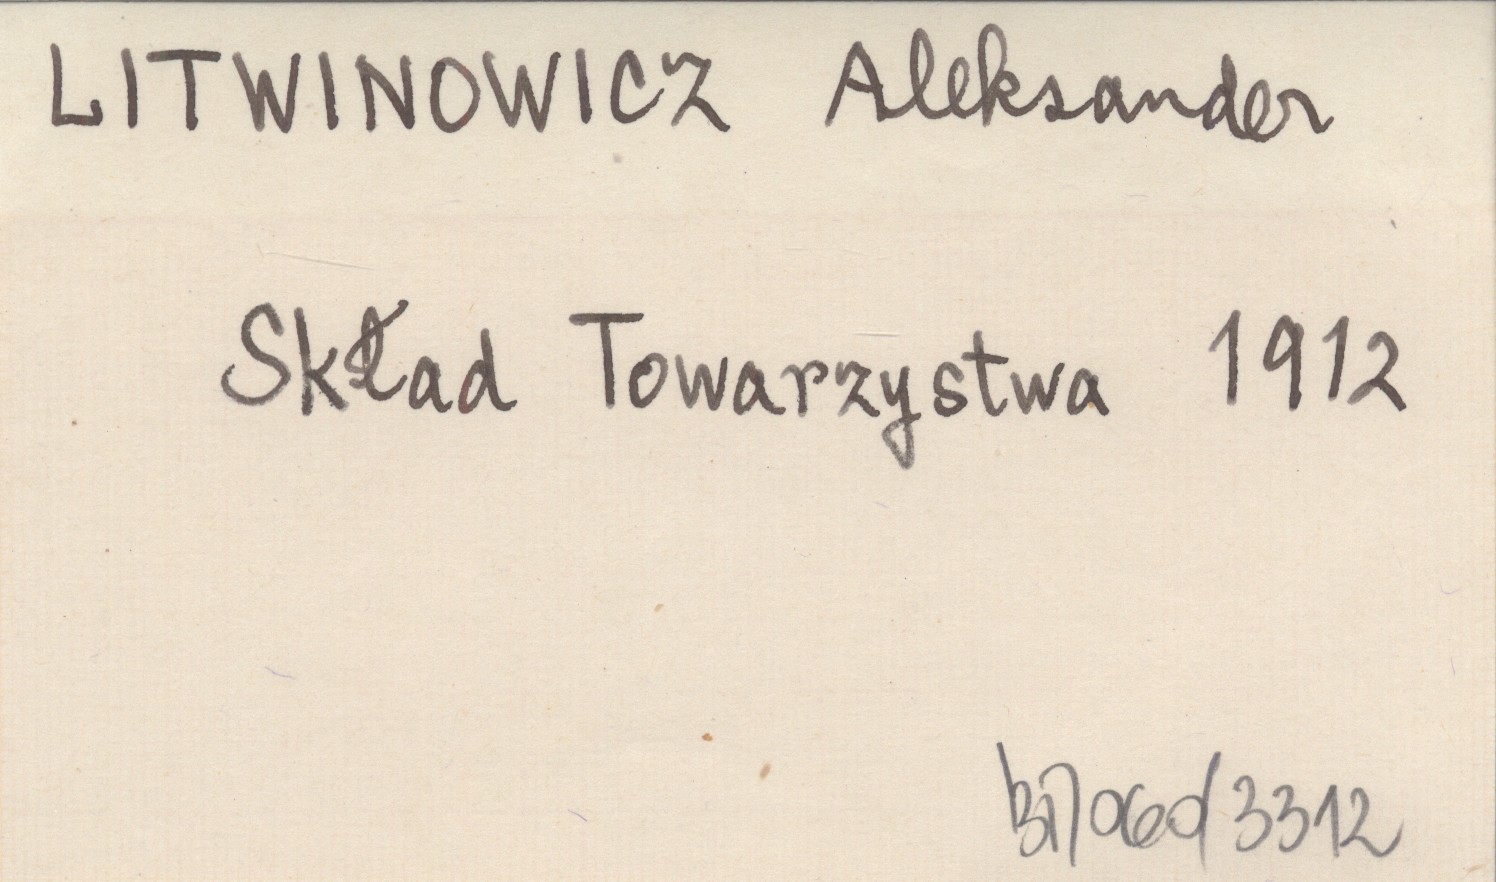 LITWINOWICZ Aleksander
Skład Towarzystwa 1912
3312